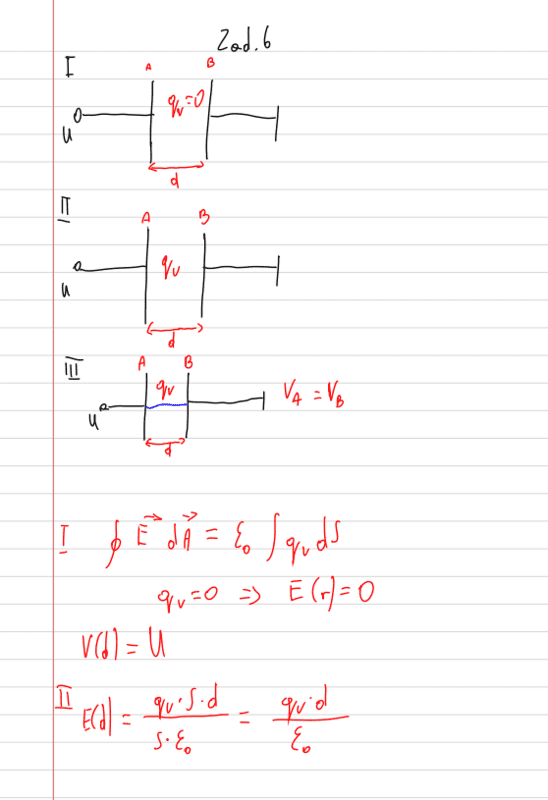 Zad. 6
I
A B
qv=0
U
d
II
A B
qv
U
d
III
A B
qv
U
VA = VB
d
I ∮ E⃗ dA⃗ = ε₀ ∫ qv dS
qv=0 => E(r)=0
V(d) = U
II E(d) = qv·S·d / S·ε₀ = qv·d / ε₀